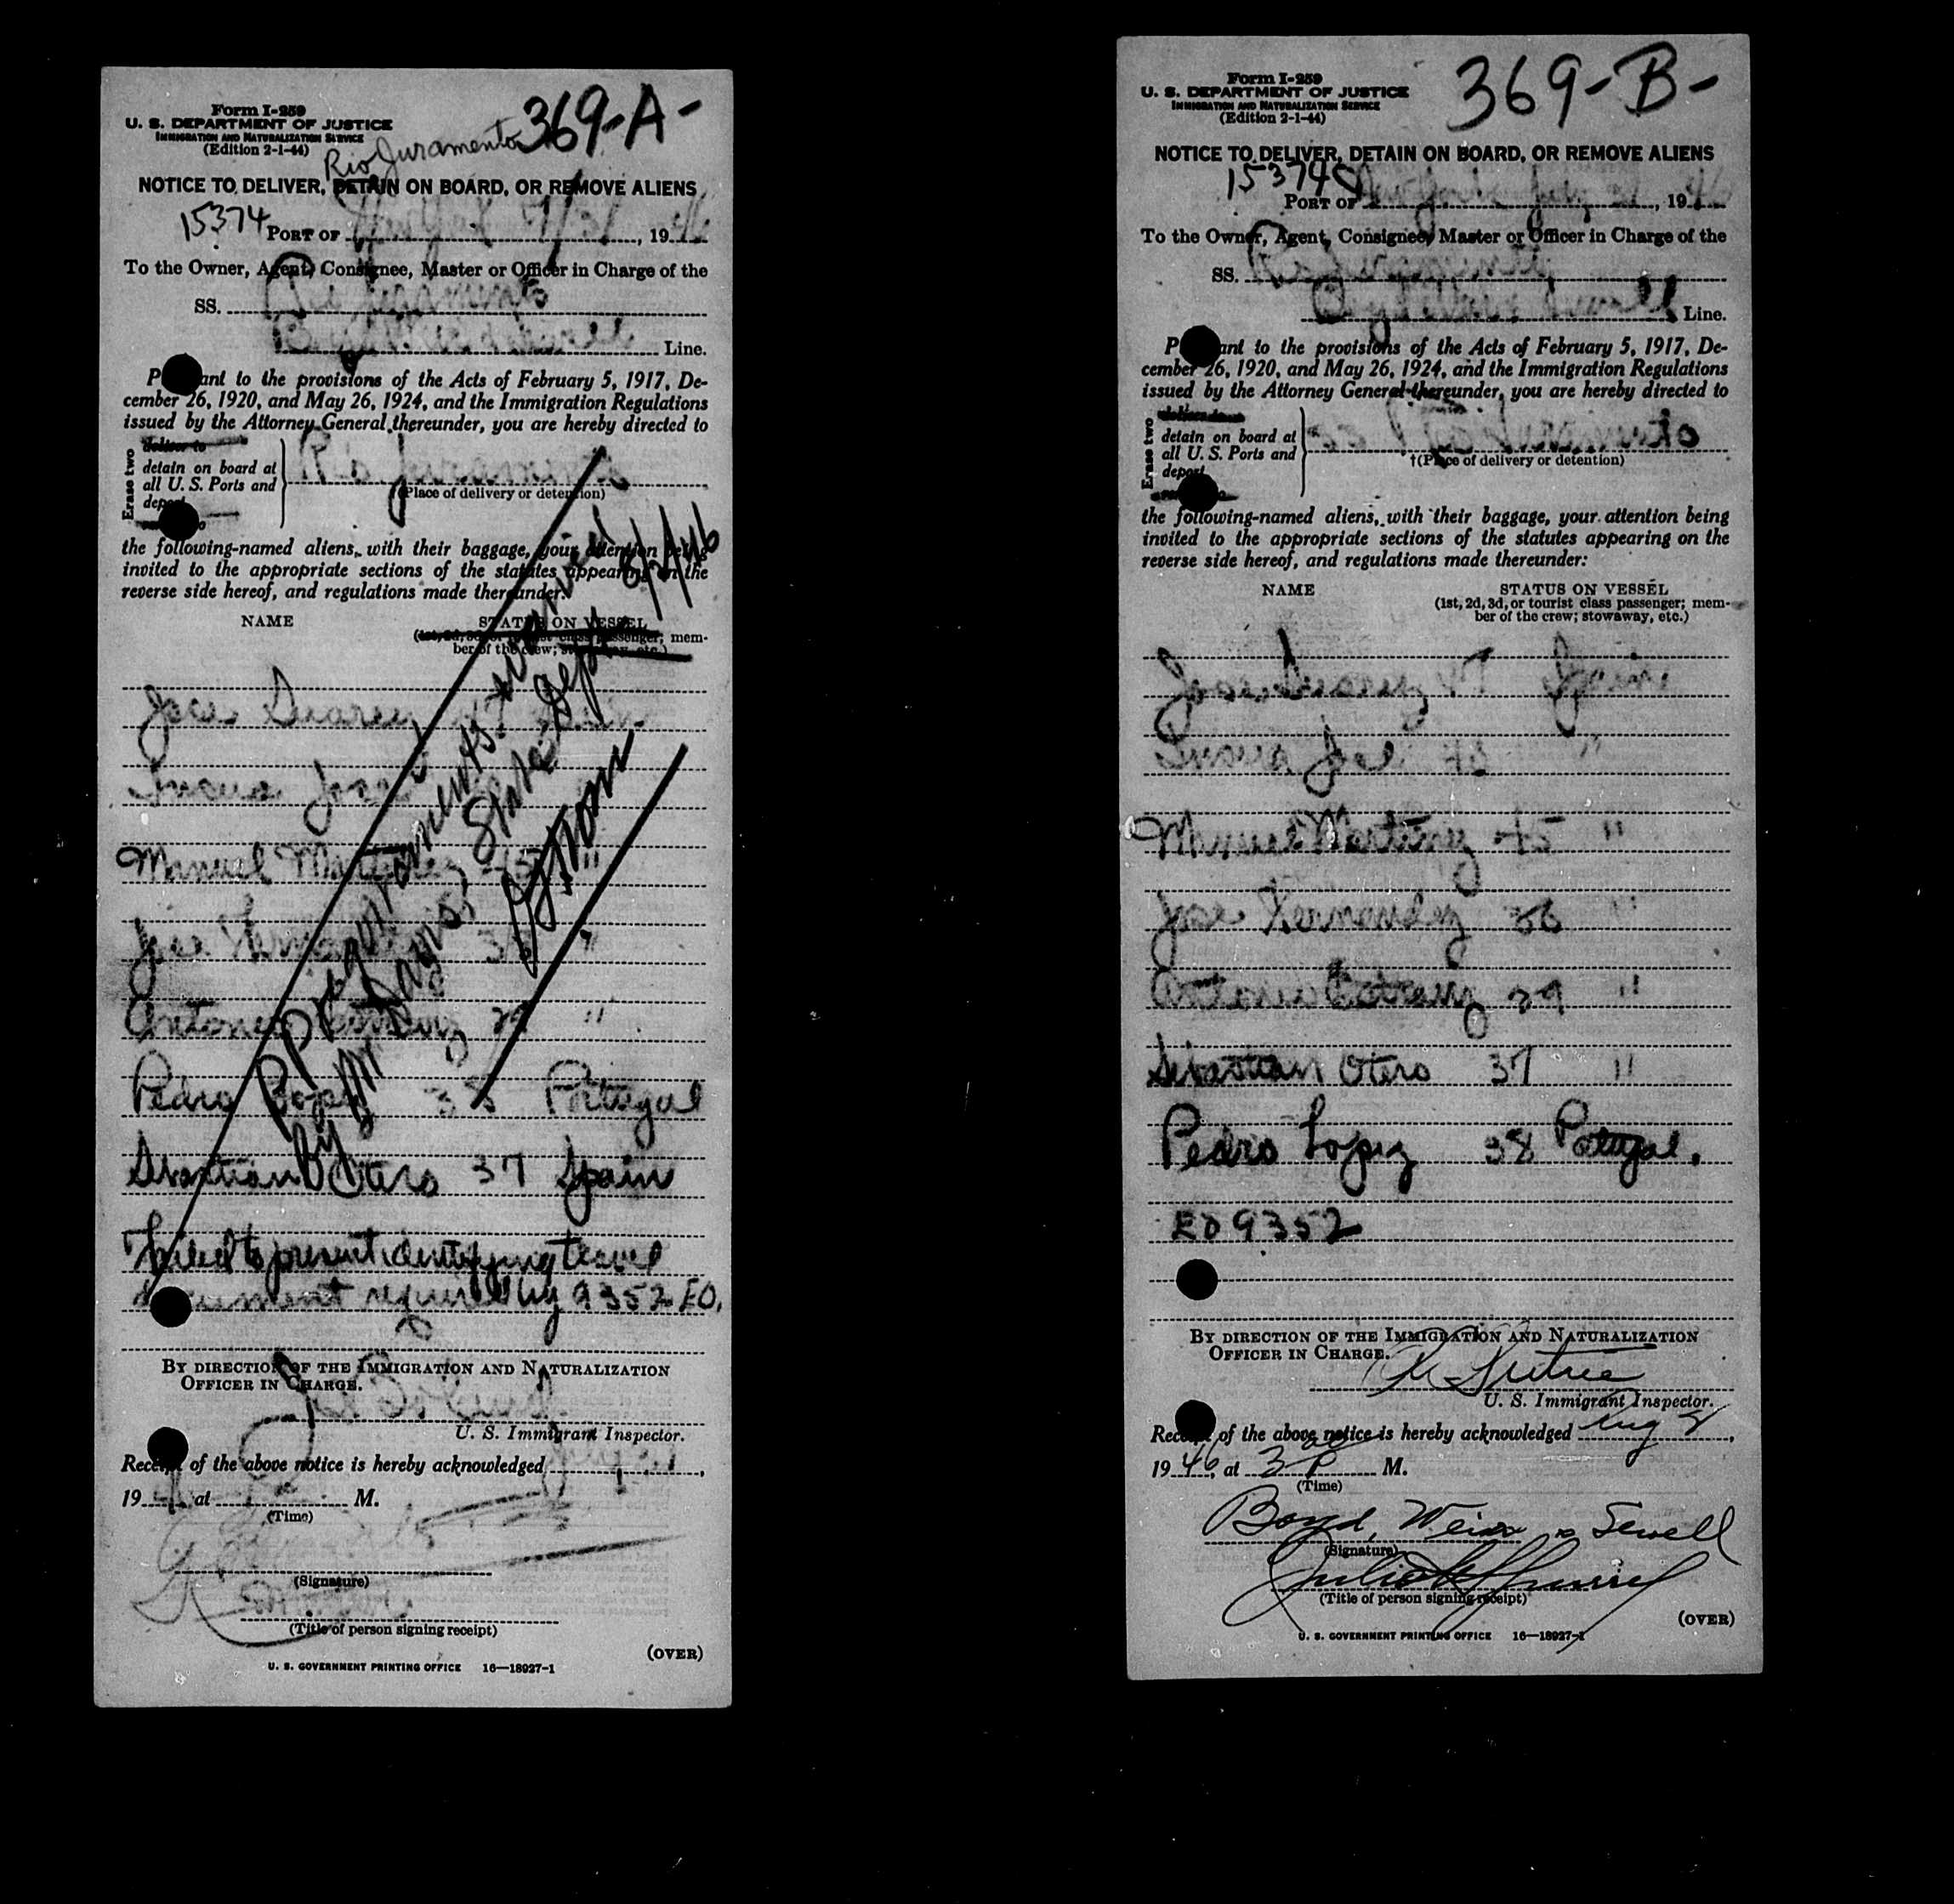 Form I-259
U. S. DEPARTMENT OF JUSTICE
IMMIGRATION AND NATURALIZATION SERVICE
(Edition 2-1-44)
369-A-
Rio Juramento
NOTICE TO DELIVER, DETAIN ON BOARD, OR REMOVE ALIENS
15374
PORT OF New York 7/31, 1946
To the Owner, Agent, Consignee, Master or Officer in Charge of the
SS. Rio Juramento
Boyd Weir & Sewell Line.
P ant to the provisions of the Acts of February 5, 1917, De-
cember 26, 1920, and May 26, 1924, and the Immigration Regulations
issued by the Attorney General thereunder, you are hereby directed to
Erase two
deliver to
detain on board at
all U. S. Ports and
depo
Rio Juramento
(Place of delivery or detention)
the following-named aliens, with their baggage, your attention being
invited to the appropriate sections of the statutes appearing on the
reverse side hereof, and regulations made thereunder:
NAME
STATUS ON VESSEL
(1st, 2d, 3d, or tourist class passenger; mem-
ber of the crew; stowaway, etc.)
Jose Suarez
Jose
Manuel Martinez 45 "
Jose Hernandez 36 "
Antonio 29 "
Pedro Lopez 38 Portugal
Sebastian Otero 37 Spain
Failed to present identifying travel
document required by 9352 EO.
by Mr State Dept 8/2/46
BY DIRECTION OF THE IMMIGRATION AND NATURALIZATION
OFFICER IN CHARGE.
U. S. Immigrant Inspector.
Receipt of the above notice is hereby acknowledged July 31,
1946 at M.
(Time)
(Signature)
(Title of person signing receipt)
(OVER)
U. S. GOVERNMENT PRINTING OFFICE 16—18927-1
Form I-259
U. S. DEPARTMENT OF JUSTICE
IMMIGRATION AND NATURALIZATION SERVICE
(Edition 2-1-44)
369-B-
NOTICE TO DELIVER, DETAIN ON BOARD, OR REMOVE ALIENS
15374
PORT OF New York July 31, 1946
To the Owner, Agent, Consignee, Master or Officer in Charge of the
SS. Rio Juramento
Boyd Weir & Sewell Line.
P ant to the provisions of the Acts of February 5, 1917, De-
cember 26, 1920, and May 26, 1924, and the Immigration Regulations
issued by the Attorney General thereunder, you are hereby directed to
Erase two
deliver to
detain on board at
all U. S. Ports and
deport
SS Rio Juramento
†(Place of delivery or detention)
the following-named aliens, with their baggage, your attention being
invited to the appropriate sections of the statutes appearing on the
reverse side hereof, and regulations made thereunder:
NAME
STATUS ON VESSEL
(1st, 2d, 3d, or tourist class passenger; mem-
ber of the crew; stowaway, etc.)
Jose Suarez 47 Spain
"
Manuel Martinez 45 "
Jose Hernandez 36 "
Antonio 29 "
Sebastian Otero 37 "
Pedro Lopez 38 Portugal.
EO 9352
BY DIRECTION OF THE IMMIGRATION AND NATURALIZATION
OFFICER IN CHARGE.
U. S. Immigrant Inspector.
Receipt of the above notice is hereby acknowledged Aug 2,
1946, at 3 P M.
(Time)
Boyd, Weir & Sewell
(Signature)
(Title of person signing receipt)
(OVER)
U. S. GOVERNMENT PRINTING OFFICE 16—18927-1